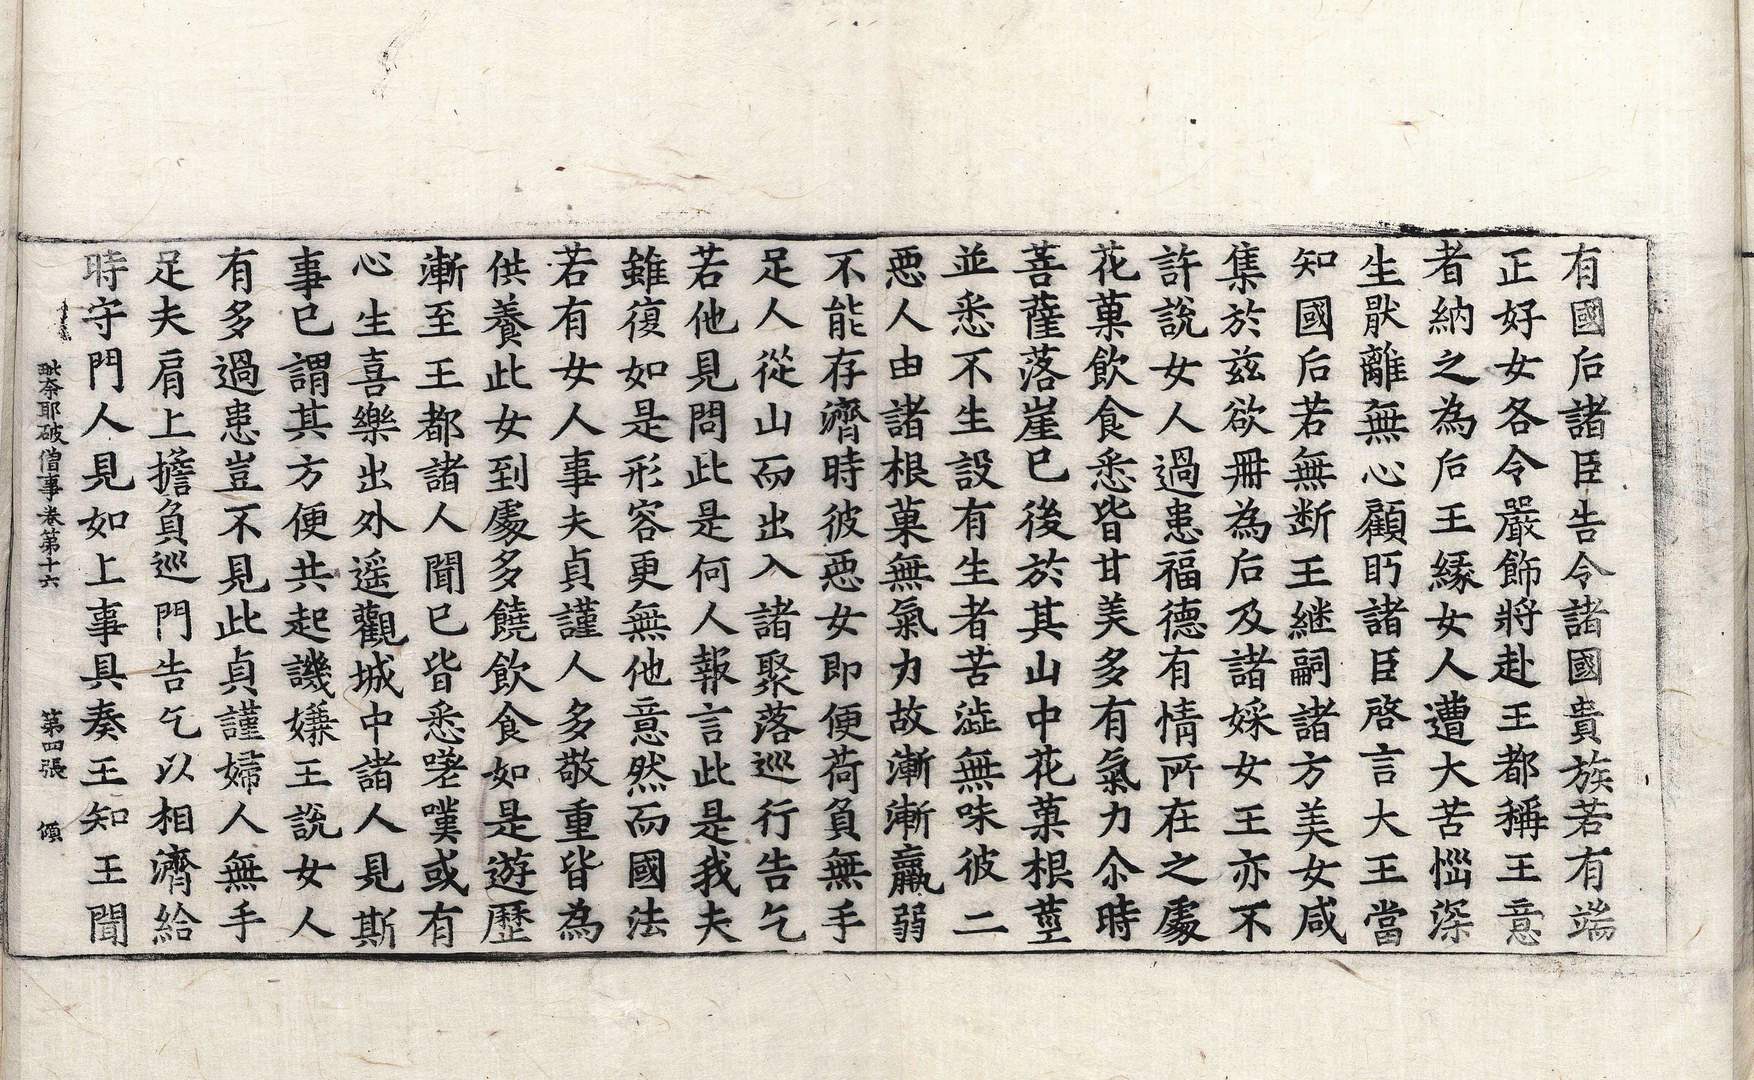 有國后諸臣告令諸國貴族若有端
正好女各令嚴飾將赴王都稱王意
者納之為后王緣女人遭大苦惱深
生猒離無心顧眄諸臣啓言大王當
知國后若無断王継嗣諸方美女咸
集於玆欲冊為后及諸婇女王亦不
許說女人過患福德有情所在之處
花菓飲食悉皆甘美多有氣力尒時
菩薩落崖已後於其山中花菓根莖
並悉不生設有生者苦澁無味彼二
惡人由諸根菓無氣力故漸漸羸弱
不能存濟時彼惡女即便荷負無手
足人從山而出入諸聚落巡行告乞
若他見問此是何人報言此是我夫
雖復如是形容更無他意然而國法
若有女人事夫貞謹人多敬重皆為
供養此女到處多饒飲食如是遊歷
漸至王都諸人聞已皆悉嗟嘆或有
心生喜樂出外遥觀城中諸人見斯
事已謂其方便共起譏嫌王說女人
有多過患豈不見此貞謹婦人無手
足夫肩上擔負巡門告乞以相濟給
時守門人見如上事具奏王知王聞
毗奈耶破僧事卷第十六 第四張 傾